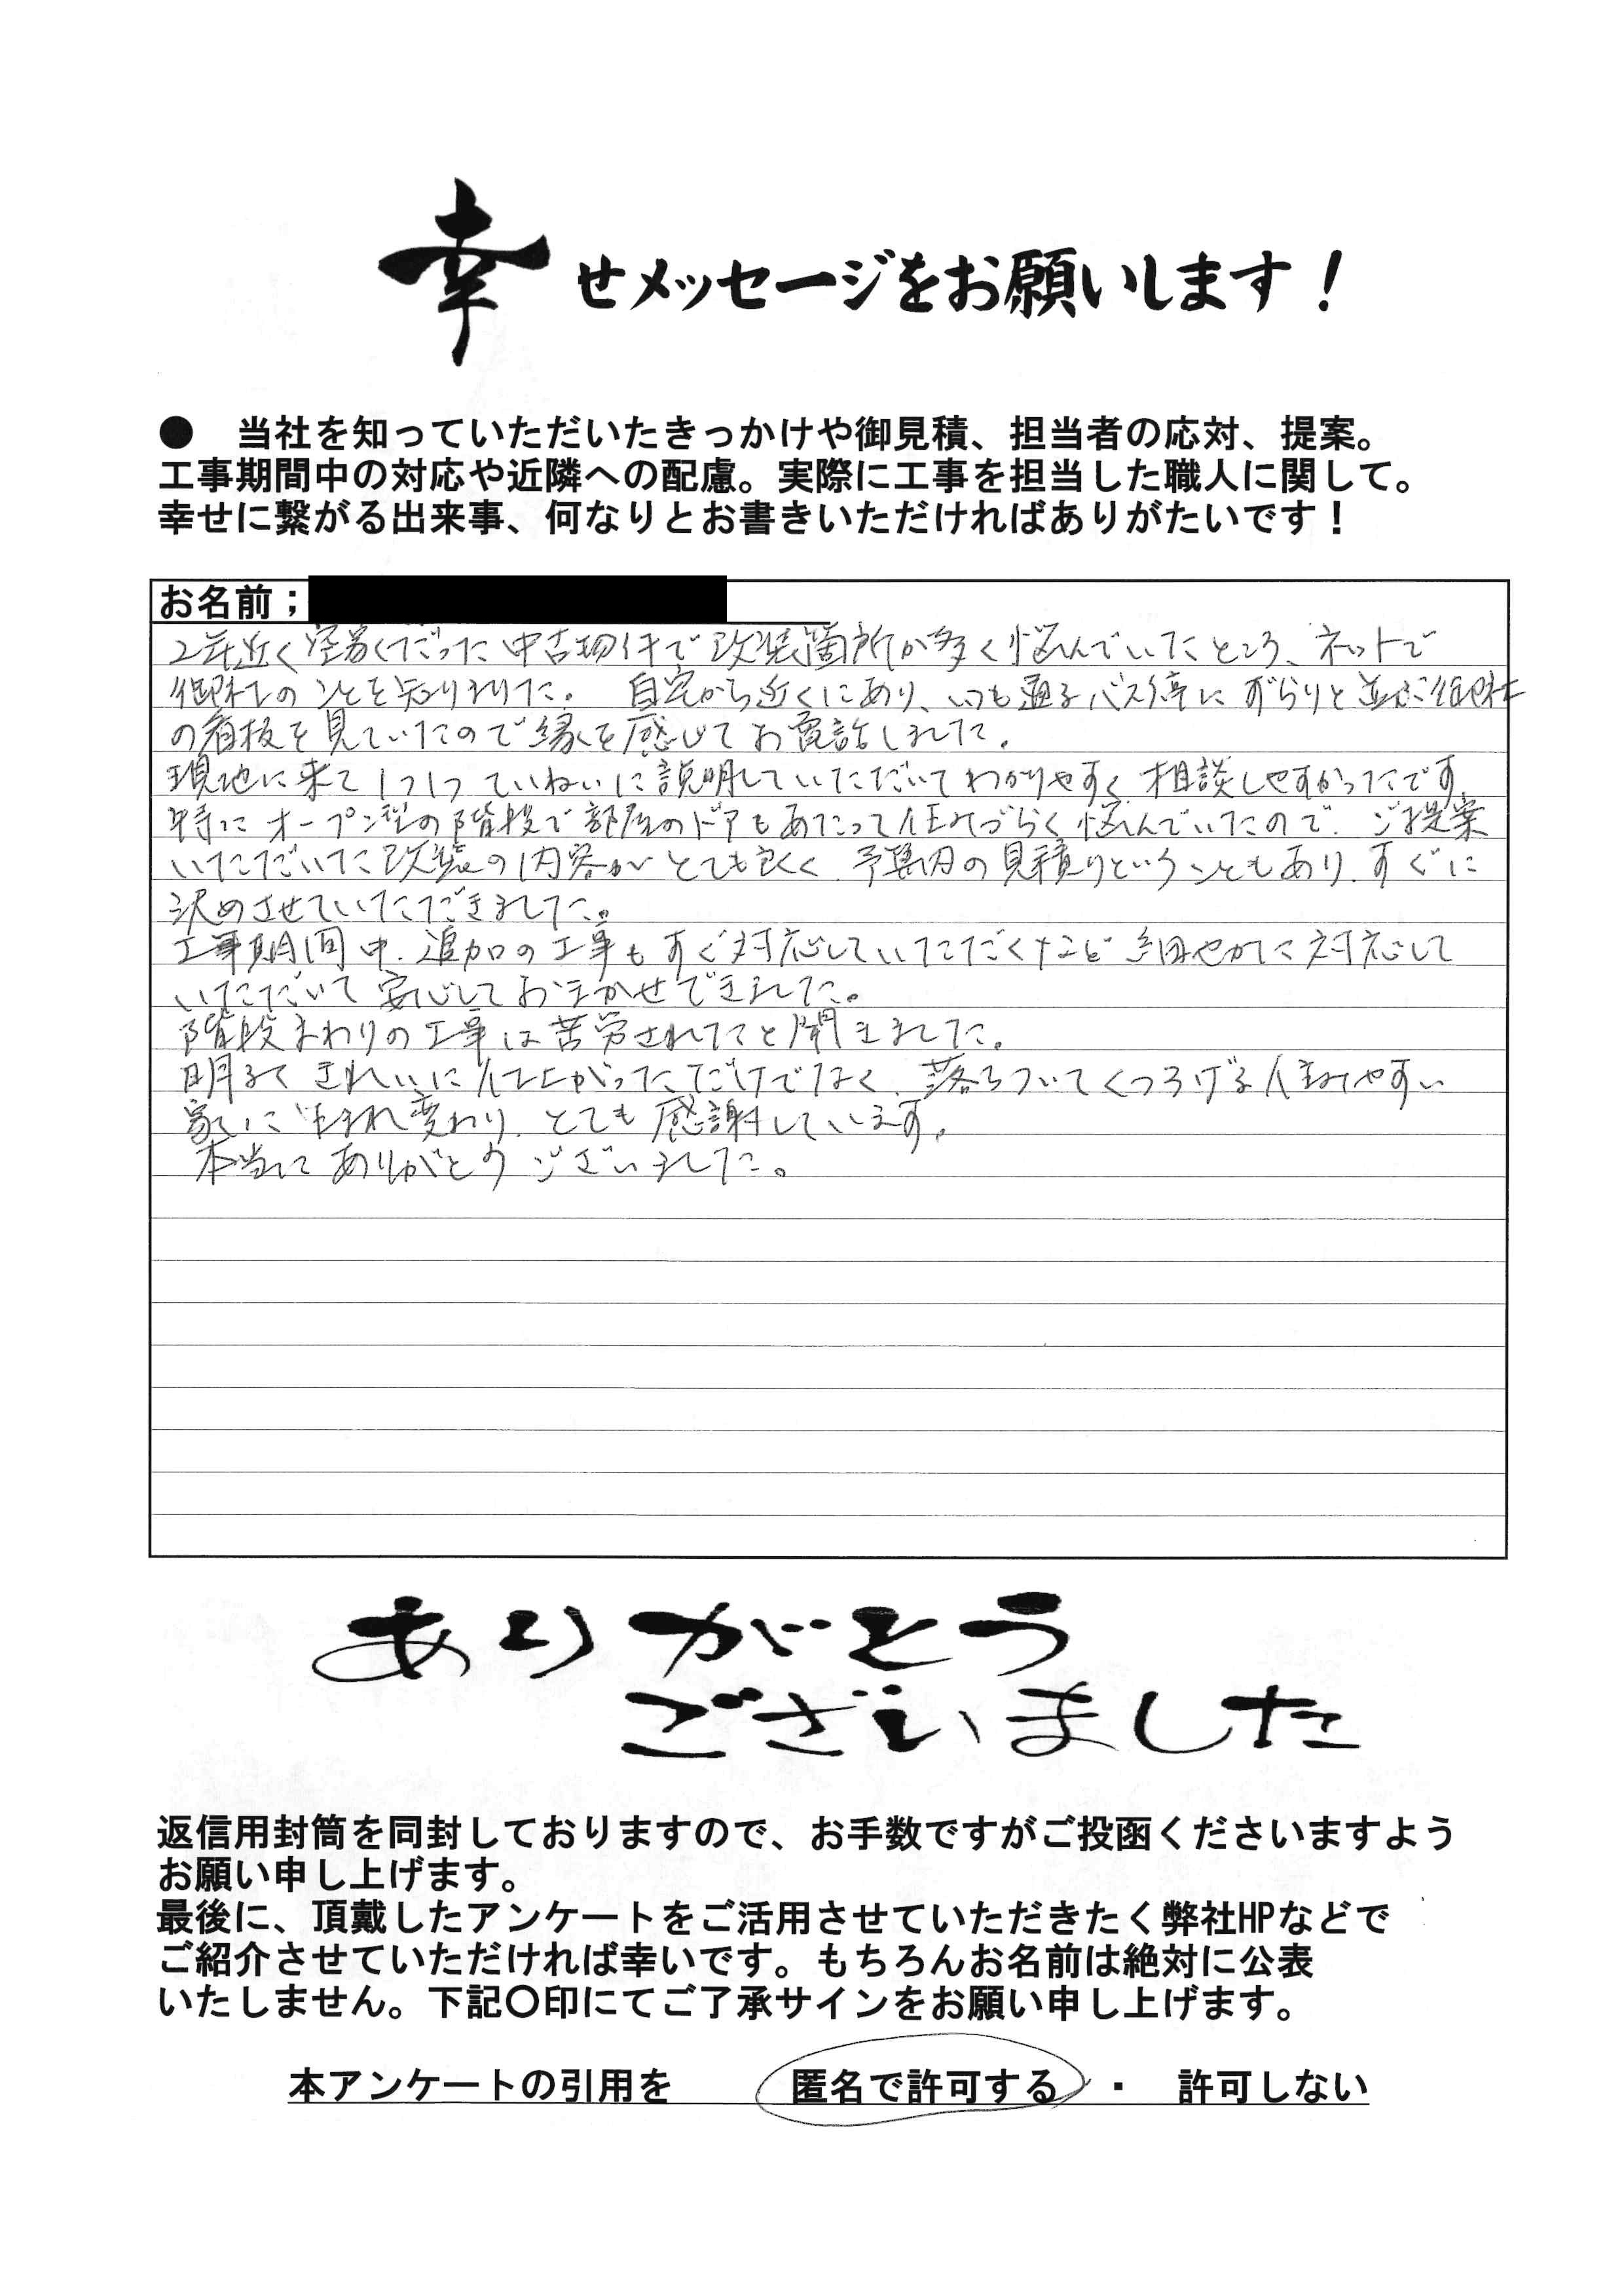 幸せメッセージをお願いします！
● 当社を知っていただいたきっかけや御見積、担当者の応対、提案。
工事期間中の対応や近隣への配慮。実際に工事を担当した職人に関して。
幸せに繋がる出来事、何なりとお書きいただければありがたいです！
お名前；
2年近く空家だった中古物件で改装箇所が多く悩んでいたところ、ネットで
御社のことを知りました。 自宅から近くにあり、いつも通るバス停にずらりと並ぶ御社
の看板を見ていたので縁を感じてお電話しました。
現地に来て1つ1つていねいに説明していただいてわかりやすく、相談しやすかったです。
特にオープン型の階段で部屋のドアもあたって住みづらく悩んでいたので、ご提案
いただいた改装の内容がとても良く、予算内の見積りということもあり、すぐに
決めさせていただきました。
工事期間中、追加の工事もすぐ対応していただくなど細やかに対応して
いただいて安心しておまかせできました。
階段まわりの工事は苦労されてたと聞きました。
明るくきれいに仕上がっただけでなく、落ちついてくつろげる住みやすい
家に生まれ変わり、とても感謝しています。
本当にありがとうございました。
ありがとう
ございました
返信用封筒を同封しておりますので、お手数ですがご投函くださいますよう
お願い申し上げます。
最後に、頂戴したアンケートをご活用させていただきたく弊社HPなどで
ご紹介させていただければ幸いです。もちろんお名前は絶対に公表
いたしません。下記〇印にてご了承サインをお願い申し上げます。
本アンケートの引用を 匿名で許可する ・ 許可しない